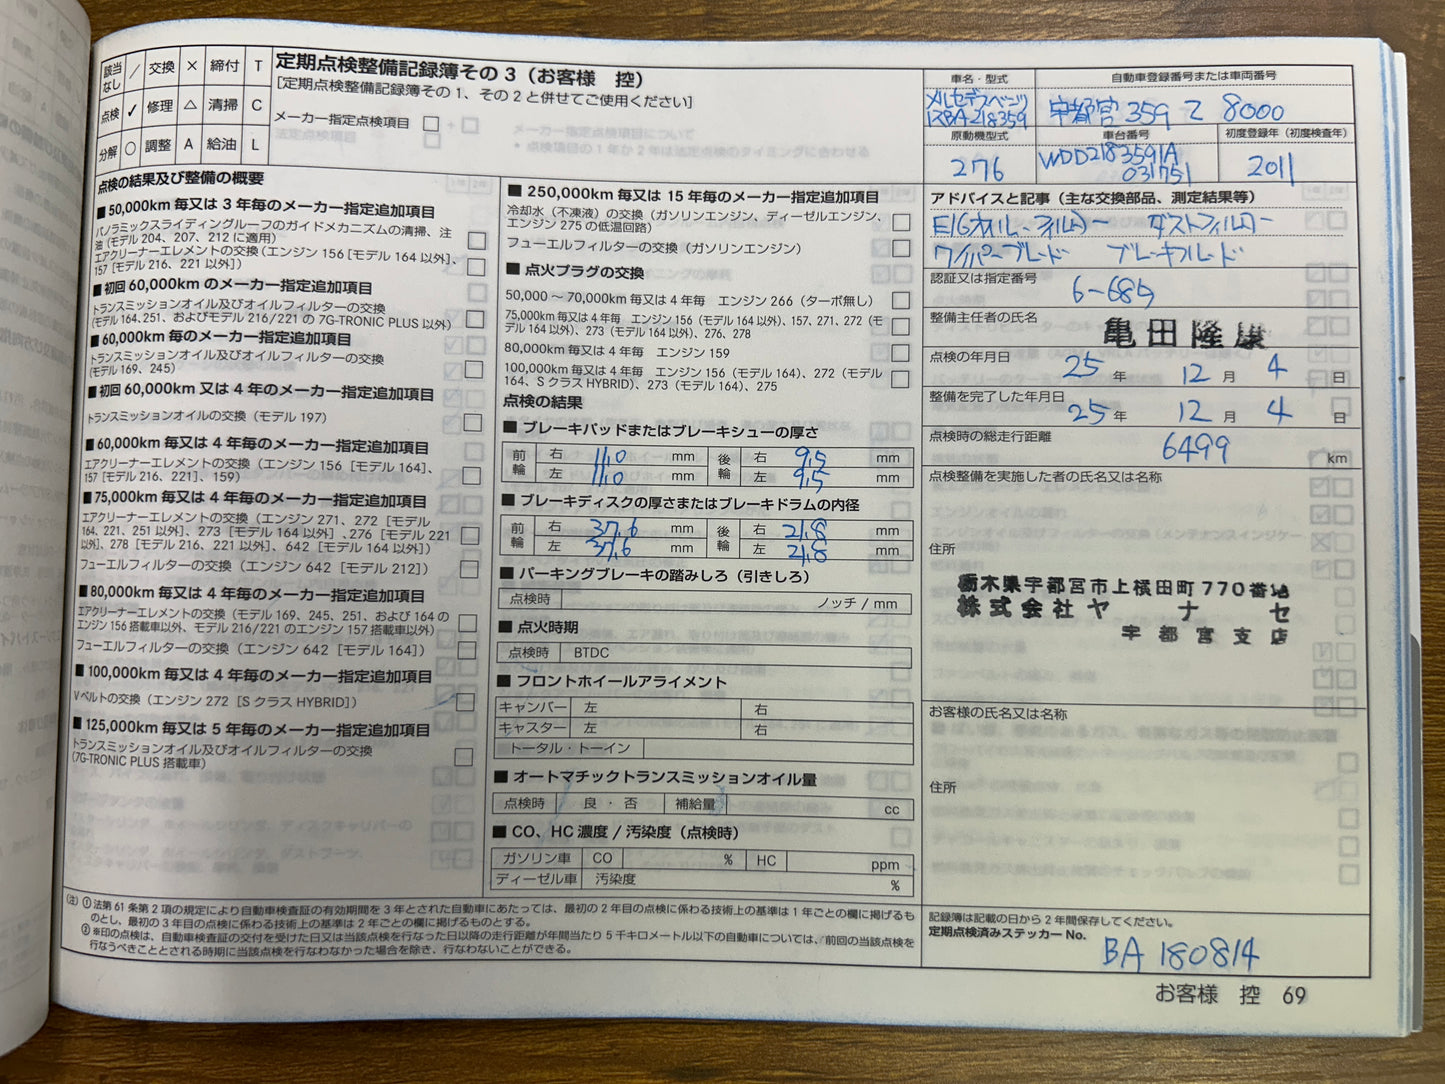 該当なし ／ 交換 × 締付 T
点検 ✓ 修理 △ 清掃 C
分解 ○ 調整 A 給油 L
定期点検整備記録簿その 3（お客様　控）
[定期点検整備記録簿その 1、その 2 と併せてご使用ください]
メーカー指定点検項目 □
点検の結果及び整備の概要
■ 50,000km 毎又は 3 年毎のメーカー指定追加項目
パノラミックスライディングルーフのガイドメカニズムの清掃、注
油（モデル 204、207、212 に適用） □
エアクリーナーエレメントの交換（エンジン 156 [モデル 164 以外]、
157 [モデル 216、221 以外]） □
■ 初回 60,000km のメーカー指定追加項目
トランスミッションオイル及びオイルフィルターの交換
（モデル 164、251、およびモデル 216/221 の 7G-TRONIC PLUS 以外） □
■ 60,000km 毎のメーカー指定追加項目
トランスミッションオイル及びオイルフィルターの交換
（モデル 169、245） □
■ 初回 60,000km 又は 4 年のメーカー指定追加項目
トランスミッションオイルの交換（モデル 197） □
■ 60,000km 毎又は 4 年毎のメーカー指定追加項目
エアクリーナーエレメントの交換（エンジン 156 [モデル 164]、
157 [モデル 216、221]、159） □
■ 75,000km 毎又は 4 年毎のメーカー指定追加項目
エアクリーナーエレメントの交換（エンジン 271、272 [モデル
164、221、251 以外]、273 [モデル 164 以外] 、276 [モデル 221
以外]、278 [モデル 216、221 以外]、642 [モデル 164 以外]） □
フューエルフィルターの交換（エンジン 642 [モデル 212]） □
■ 80,000km 毎又は 4 年毎のメーカー指定追加項目
エアクリーナーエレメントの交換（モデル 169、245、251、および 164 の
エンジン 156 搭載車以外、モデル 216/221 のエンジン 157 搭載車以外） □
フューエルフィルターの交換（エンジン 642 [モデル 164]） □
■ 100,000km 毎又は 4 年毎のメーカー指定追加項目
V ベルトの交換（エンジン 272 [S クラス HYBRID]） □
■ 125,000km 毎又は 5 年毎のメーカー指定追加項目
トランスミッションオイル及びオイルフィルターの交換
（7G-TRONIC PLUS 搭載車） □
■ 250,000km 毎又は 15 年毎のメーカー指定追加項目
冷却水（不凍液）の交換（ガソリンエンジン、ディーゼルエンジン、
エンジン 275 の低温回路） □
フューエルフィルターの交換（ガソリンエンジン） □
■ 点火プラグの交換
50,000 ～ 70,000km 毎又は 4 年毎　エンジン 266（ターボ無し） □
75,000km 毎又は 4 年毎　エンジン 156（モデル 164 以外）、157、271、272（モ
デル 164 以外）、273（モデル 164 以外）、276、278 □
80,000km 毎又は 4 年毎　エンジン 159 □
100,000km 毎又は 4 年毎　エンジン 156（モデル 164）、272（モデル
164、S クラス HYBRID）、273（モデル 164）、275 □
点検の結果
■ ブレーキパッドまたはブレーキシューの厚さ
前輪 右 11,0 mm 後輪 右 9,5 mm
左 11,0 mm 左 9,5 mm
■ ブレーキディスクの厚さまたはブレーキドラムの内径
前輪 右 37,6 mm 後輪 右 21,8 mm
左 37,6 mm 左 21,8 mm
■ パーキングブレーキの踏みしろ（引きしろ）
点検時 ノッチ / mm
■ 点火時期
点検時 BTDC
■ フロントホイールアライメント
キャンバー 左 右
キャスター 左 右
トータル・トーイン
■ オートマチックトランスミッションオイル量
点検時 良 ・ 否 補給量 cc
■ CO、HC 濃度 / 汚染度（点検時）
ガソリン車 CO % HC ppm
ディーゼル車 汚染度 %
車名・型式 自動車登録番号または車両番号
メルセデスベンツ
RBA-218359 宇都宮 359 Z 8000
原動機型式 車台番号 初度登録年（初度検査年）
276 WDD2183591A
031751 2011
アドバイスと記事（主な交換部品、測定結果等）
E/Gオイル、フィルター ダストフィルター
ワイパーブレード ブレーキフルード
認証又は指定番号 6-685
整備主任者の氏名 亀田隆康
点検の年月日 25 年 12 月 4 日
整備を完了した年月日 25 年 12 月 4 日
点検時の総走行距離 6499 km
点検整備を実施した者の氏名又は名称
住所
栃木県宇都宮市上横田町770番地
株式会社ヤナセ
宇都宮支店
お客様の氏名又は名称
住所
記録簿は記載の日から 2 年間保存してください。
定期点検済みステッカー No.
BA 180814
（注）① 法第 61 条第 2 項の規定により自動車検査証の有効期間を 3 年とされた自動車にあたっては、最初の 2 年目の点検に係わる技術上の基準は 1 年ごとの欄に掲げるも
のとし、最初の 3 年目の点検に係わる技術上の基準は 2 年ごとの欄に掲げるものとする。
② ※印の点検は、自動車検査証の交付を受けた日又は当該点検を行なった日以降の走行距離が年間当たり 5 千キロメートル以下の自動車については、前回の当該点検を
行なうべきこととされる時期に当該点検を行なわなかった場合を除き、行なわないことができる。
お客様　控　69